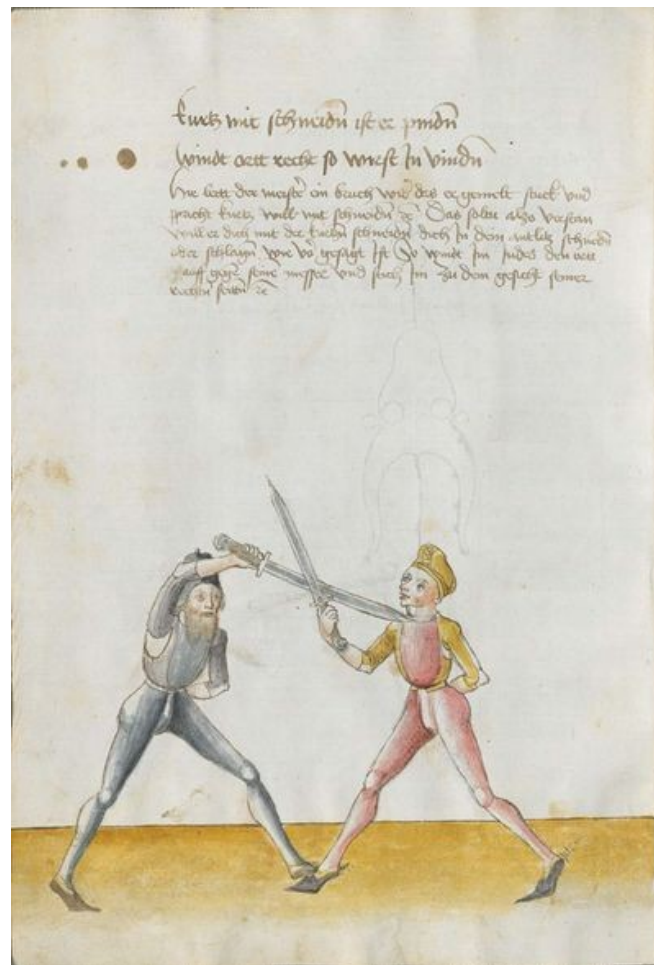 kurtz mit schneidn̄ ist er pindn̄
windt ortt recht so wirst In vindn̄
Hie lett der meist' ein bruch wid' das egemelt stuck vnd
spricht kurtz will mit schneidn̄ Das soltu also verstan
will er dich mit der kurtzn̄ schneidn̄ dich In dem antlitz schneidn̄
oder schlagn̄ wie vor gesagt ist So windt Im Indes den ortt
auff gege' seine messer vnd stich Im zu dem gesicht seiner
rechtn̄ seittn̄